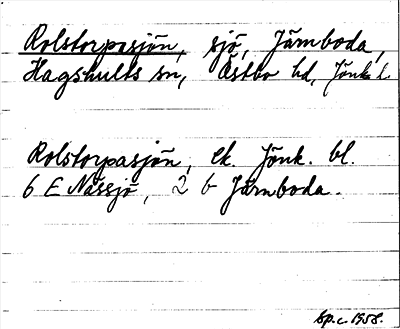 Rolstorpasjön, sjö, Järnboda,
Hagshults sn, Östbo hd, Jönk. l.
Rolstorpasjön, ek. Jönk. bl.
6 E Nässjö, 2 b Järnboda.
Sp.c 1958.